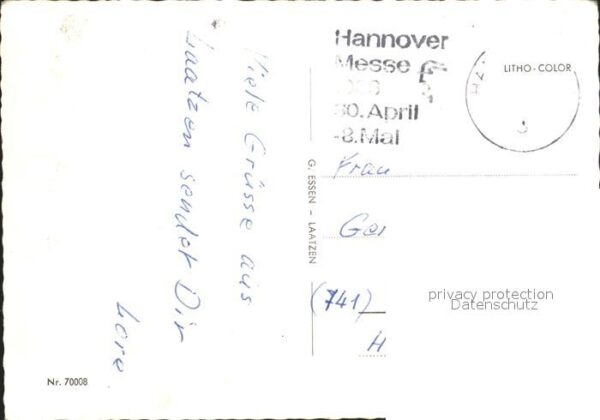 Viele Grüsse aus
Laatzen sendet Dir
Lore
Hannover
Messe
30. April
-8. Mai
LITHO-COLOR
Frau
G. ESSEN - LAATZEN
Ger
(741)
H
privacy protection
Datenschutz
Nr. 70008